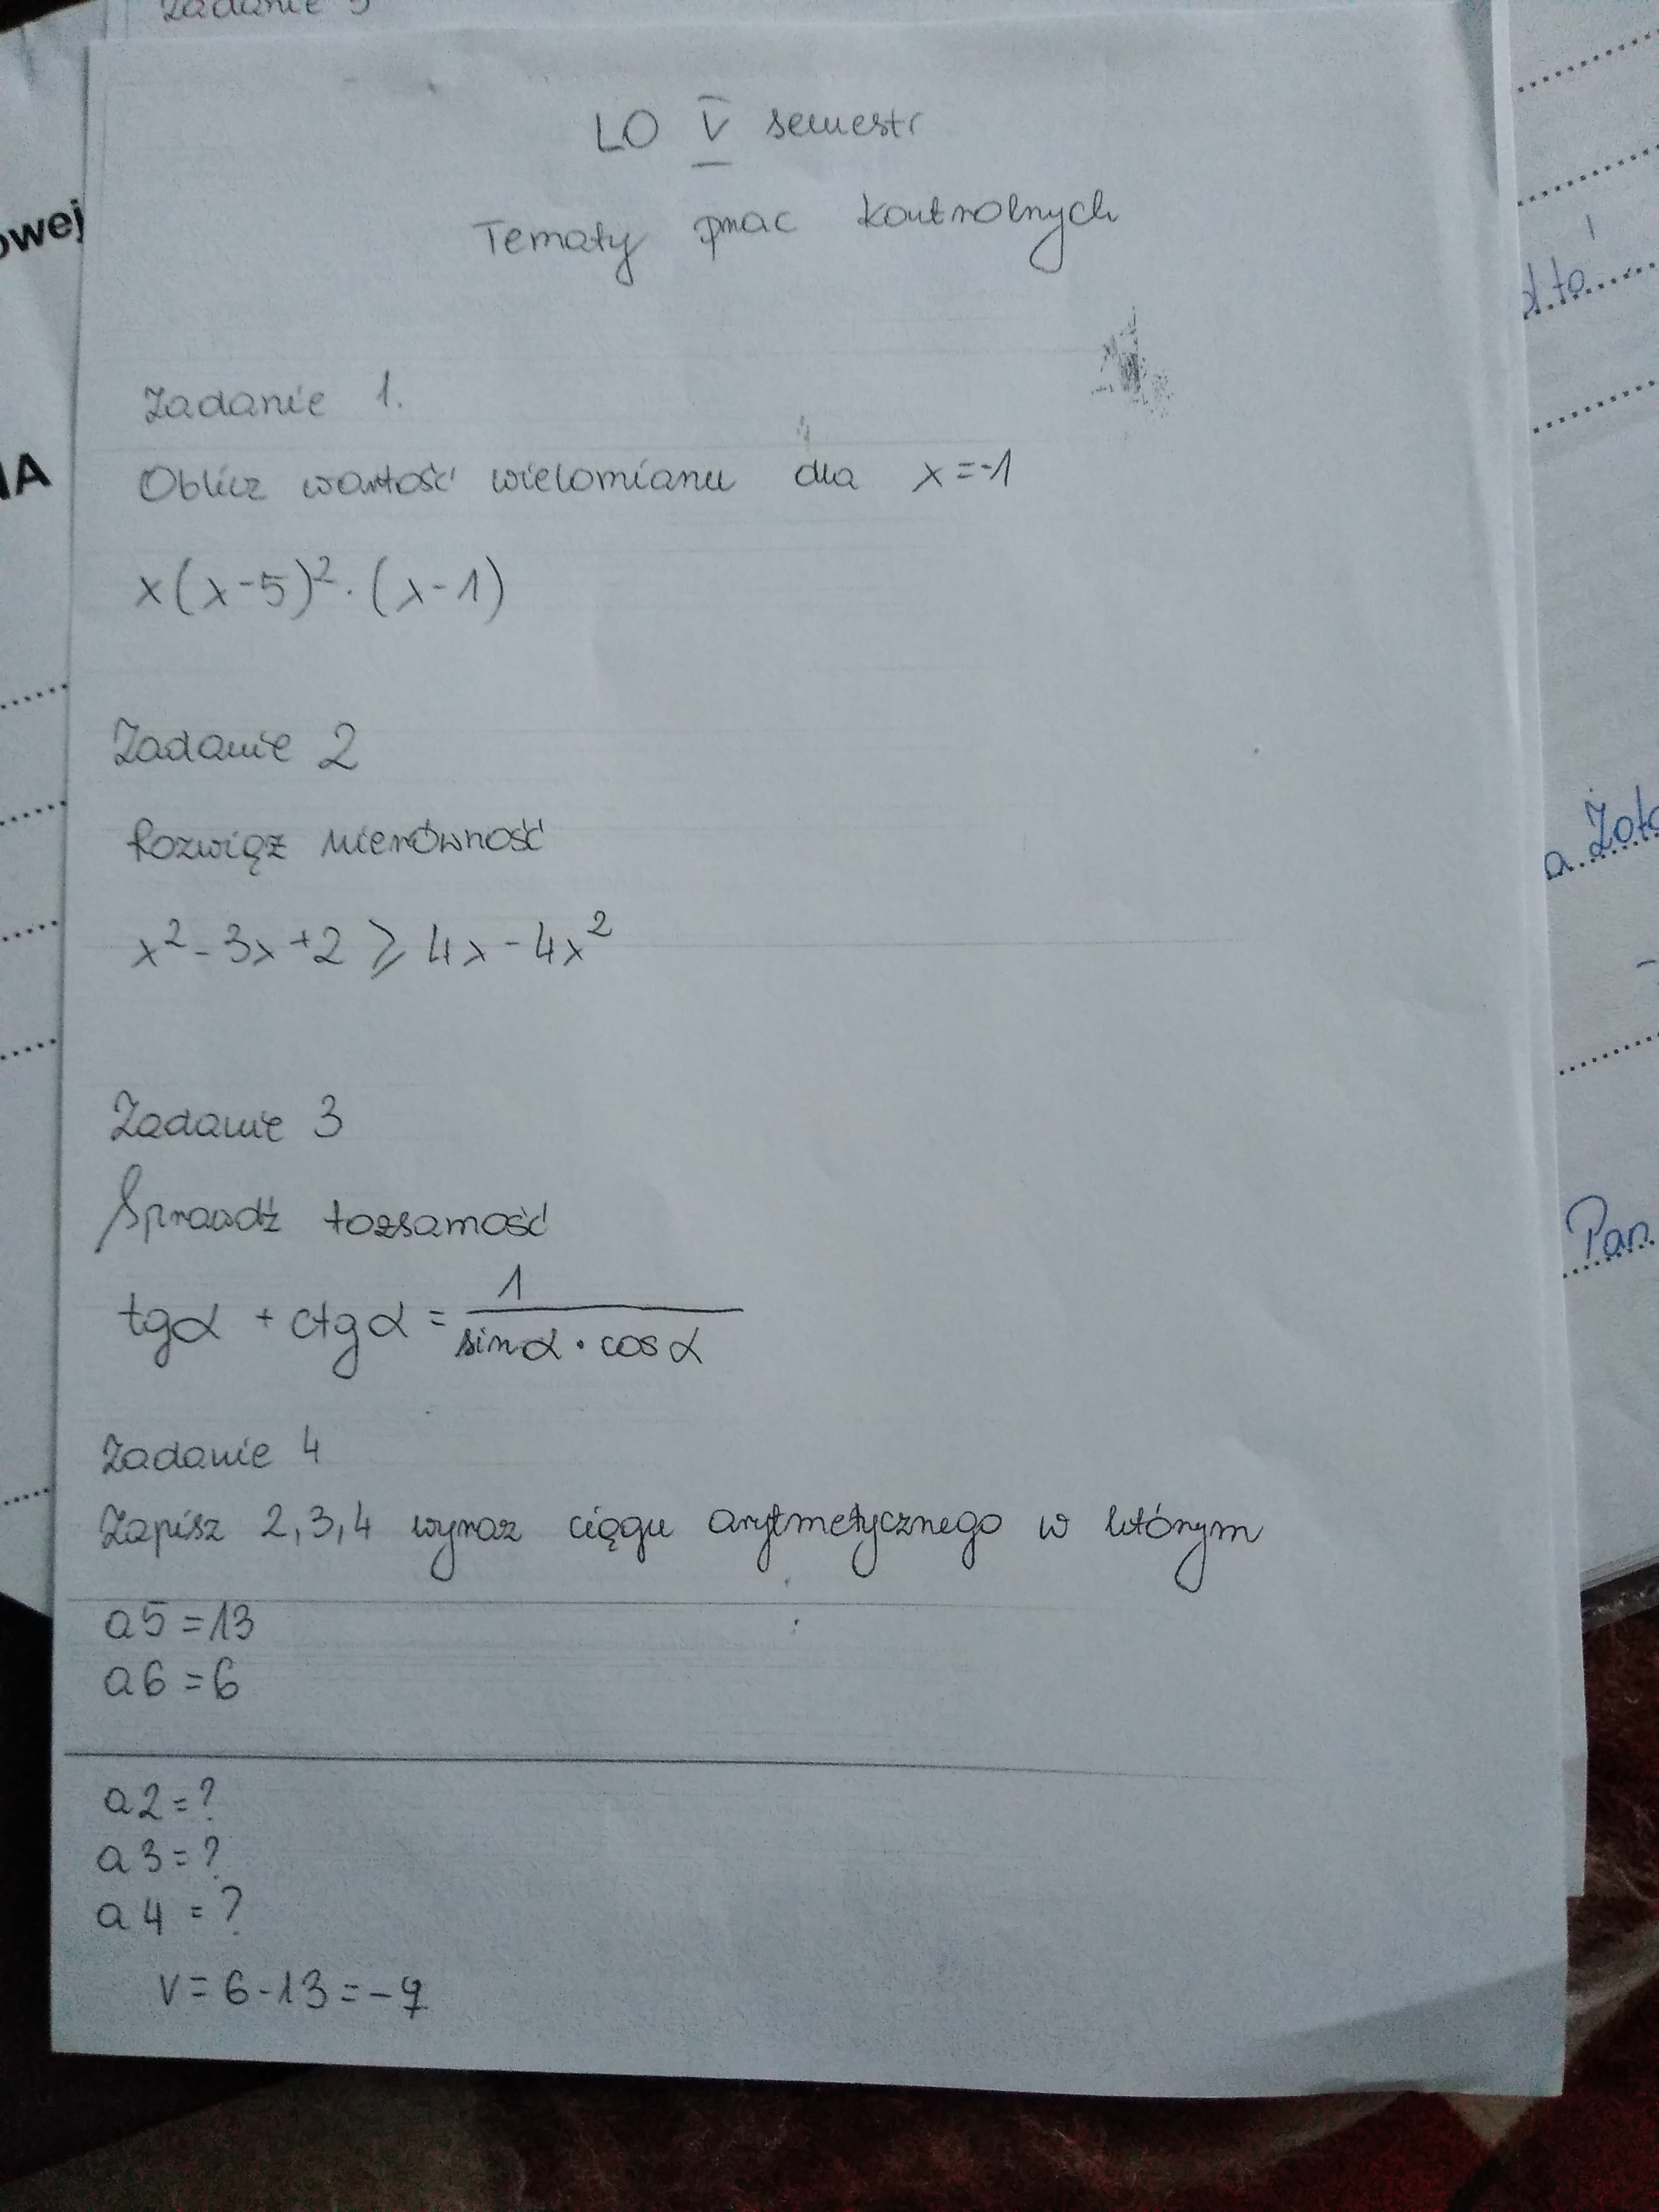 Zadanie 5
LO V semestr
Tematy prac kontrolnych
Zadanie 1.
Oblicz wartość wielomianu dla x=-1
x(x-5)²·(x-1)
Zadanie 2
Rozwiąż nierówność
x²-3x+2⩾4x-4x²
Zadanie 3
Sprawdź tożsamość
tgα + ctgα = 1/(sinα · cosα)
Zadanie 4
Zapisz 2,3,4 wyraz ciągu arytmetycznego w którym
a5=13
a6=6
a2=?
a3=?
a4=?
v=6-13=-7
owej
IA
Pan